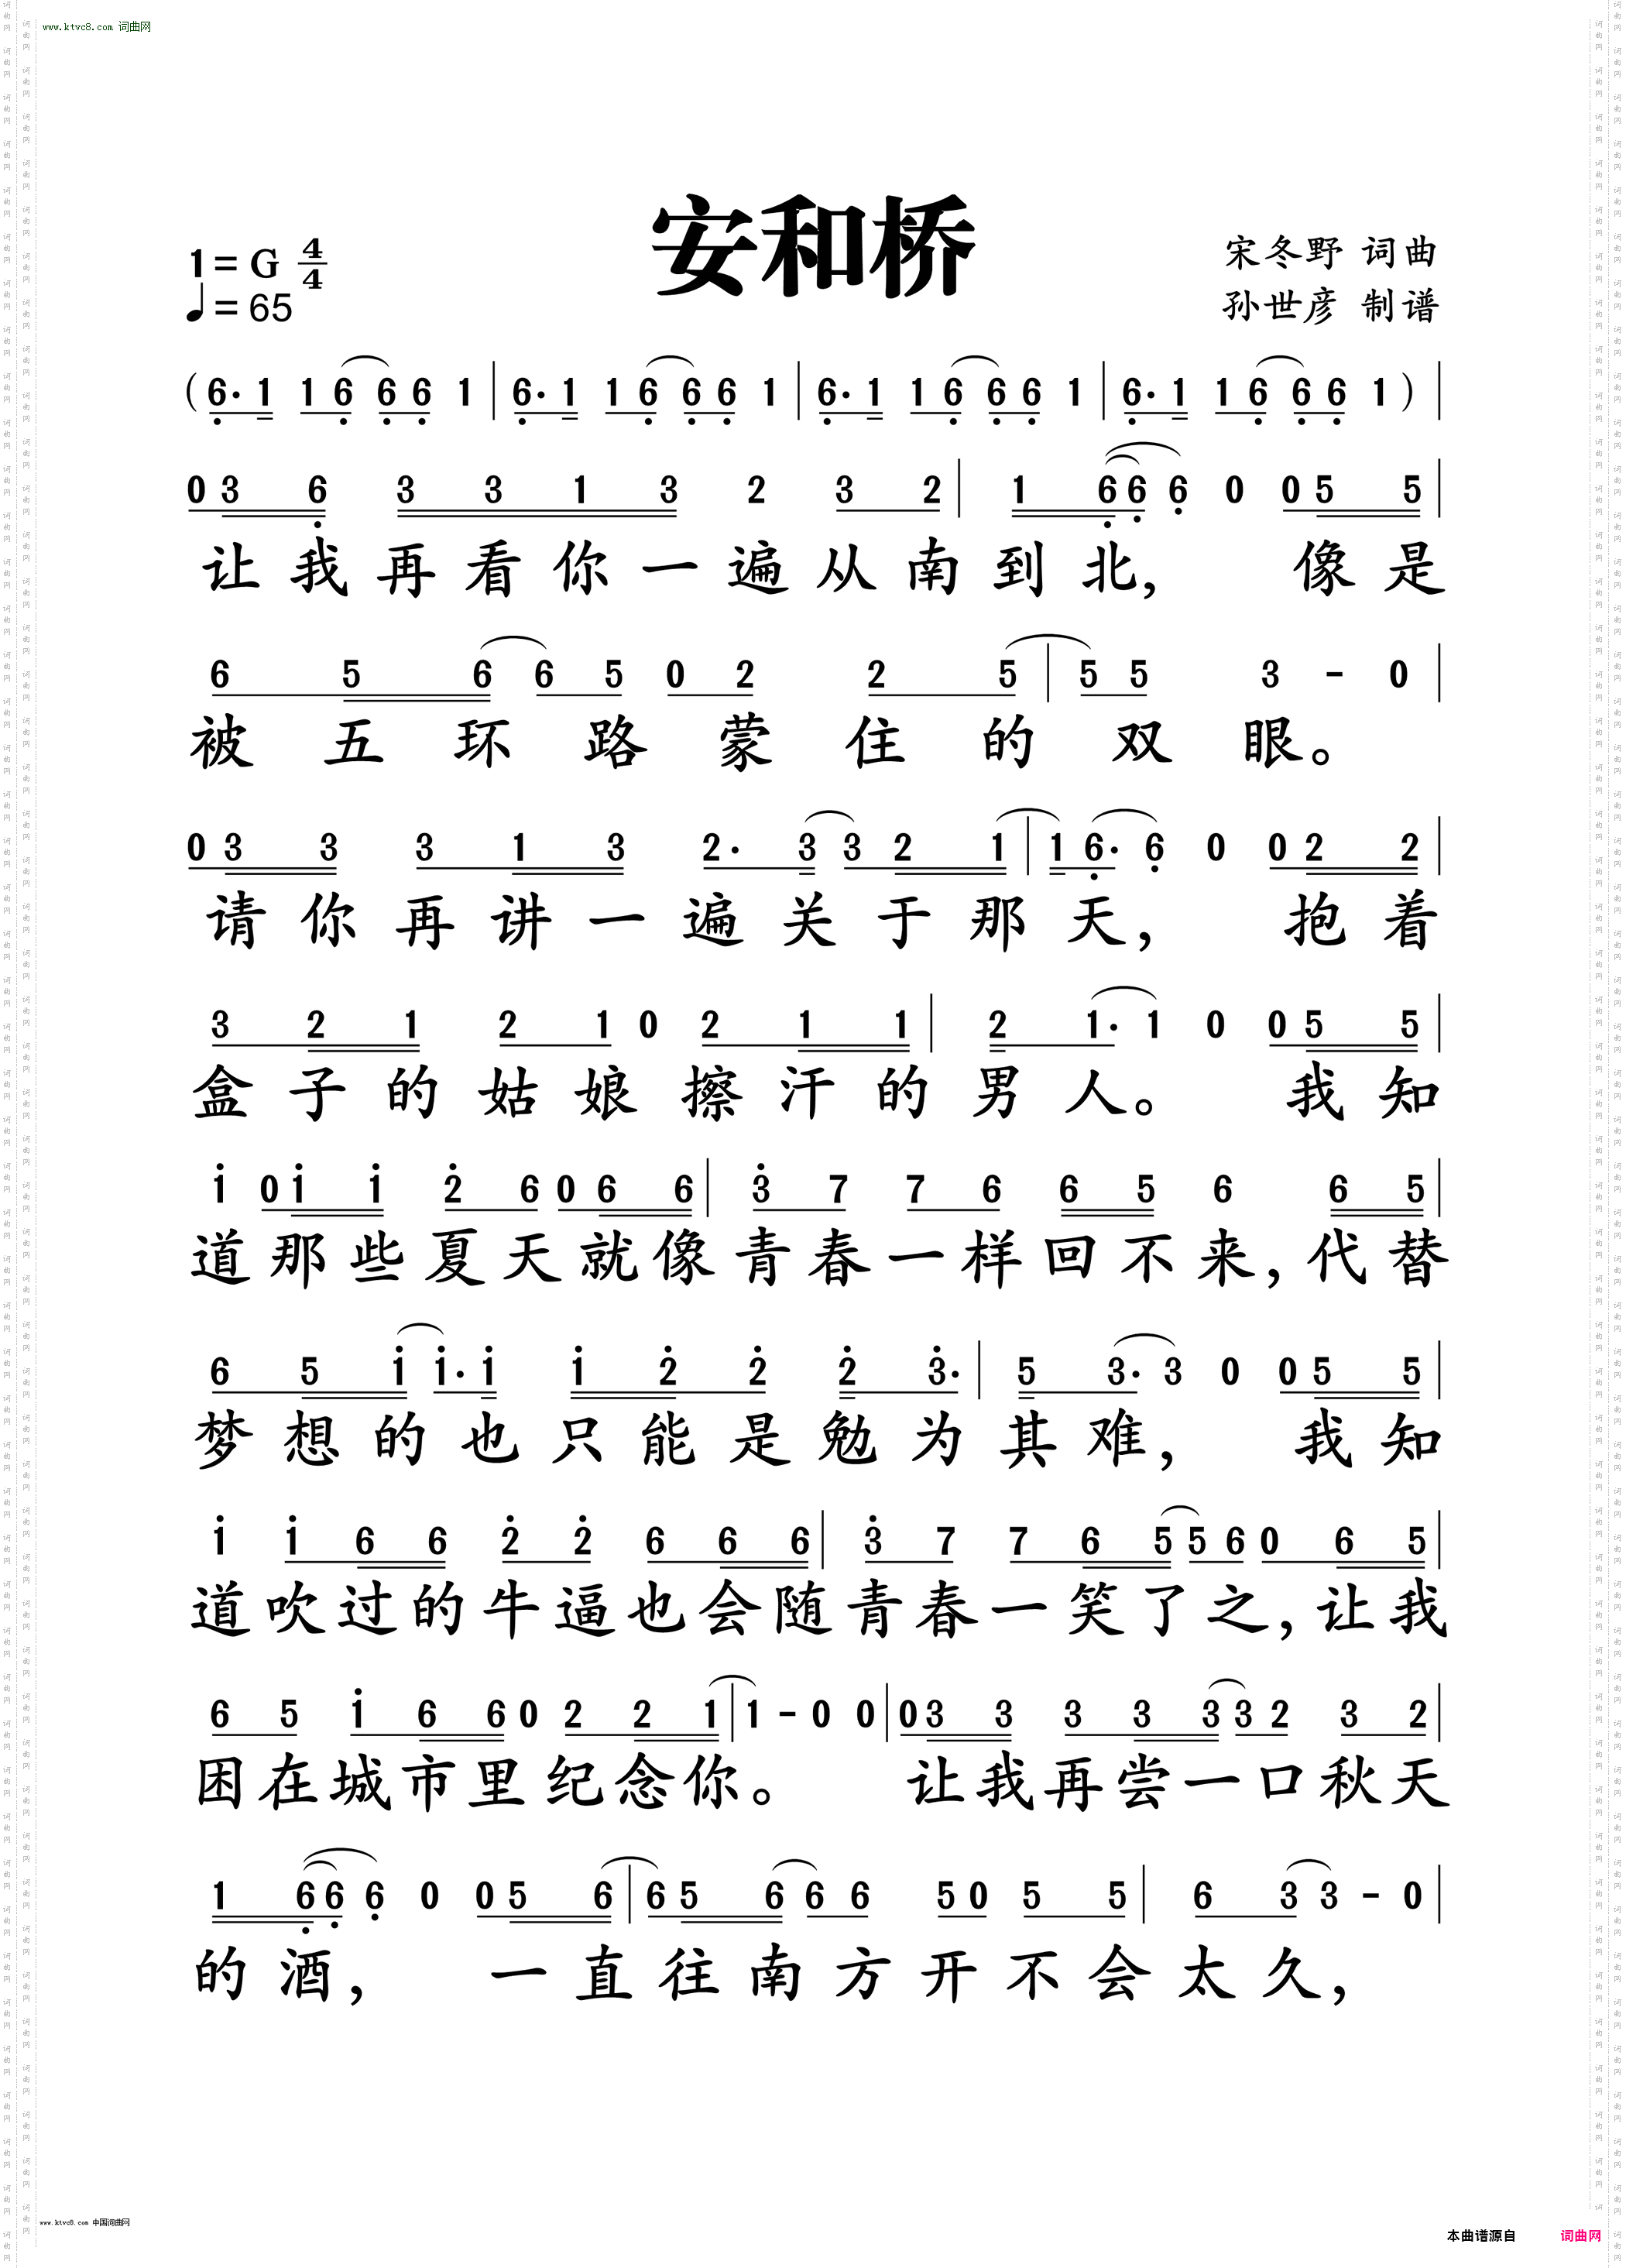 www.ktvc8.com 词曲网
安和桥
1=G 4/4
♩=65
宋冬野 词曲
孙世彦 制谱
(6·1 16 66 1 | 6·1 16 66 1 | 6·1 16 66 1 | 6·1 16 66 1) |
036 3313 2 32 | 166 6 0 055 |
让我再看你一遍从南到北, 像是
656 65 02 25 | 55 3 - 0 |
被五环路蒙住的双眼。
033 313 2·3 321 | 16· 6 0 022 |
请你再讲一遍关于那天, 抱着
321 21 0 211 | 21· 1 0 055 |
盒子的姑娘擦汗的男人。 我知
1 011 26 066 | 37 76 65 6 65 |
道那些夏天就像青春一样回不来,代替
651 1·1 122 23· | 53· 3 0 055 |
梦想的也只能是勉为其难, 我知
1 166 22 666 | 37 765 56 065 |
道吹过的牛逼也会随青春一笑了之,让我
65 166 0 221 | 1 - 0 0 | 033 333 32 32 |
困在城市里纪念你。 让我再尝一口秋天
166 6 0 056 | 656 66 50 55 | 63 3 - 0 |
的酒, 一直往南方开不会太久,
www.ktvc8.com 中国词曲网
本曲谱源自 词曲网